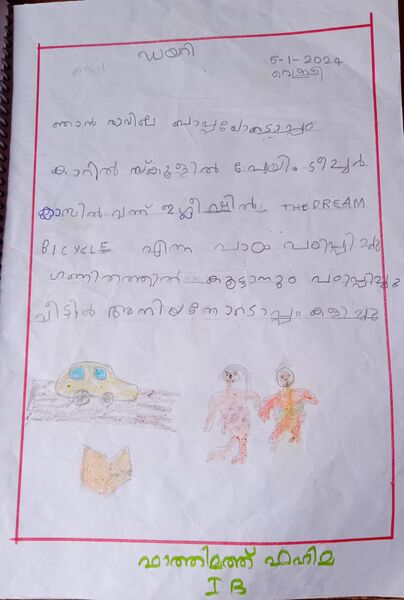 ഡയറി
5-1-2024
വെള്ളി
ഞാൻ രാവിലെ ബാപ്പപോട്ടൊപ്പം
കാറിൽ സ്കൂളിൽ പോയി. ടീച്ചർ
ക്ലാസിൽ വന്ന് ഇംഗ്ലീഷിൽ THE DREAM
BICYCLE എന്ന പാഠം പഠിപ്പിച്ചു
ഗണിതത്തിൽ കൂട്ടാനും പഠിപ്പിച്ചു
വീട്ടിൽ അനിയനോടൊപ്പം കളിച്ചു
ഫാത്തിമത്ത് ഫഹിമ
I B